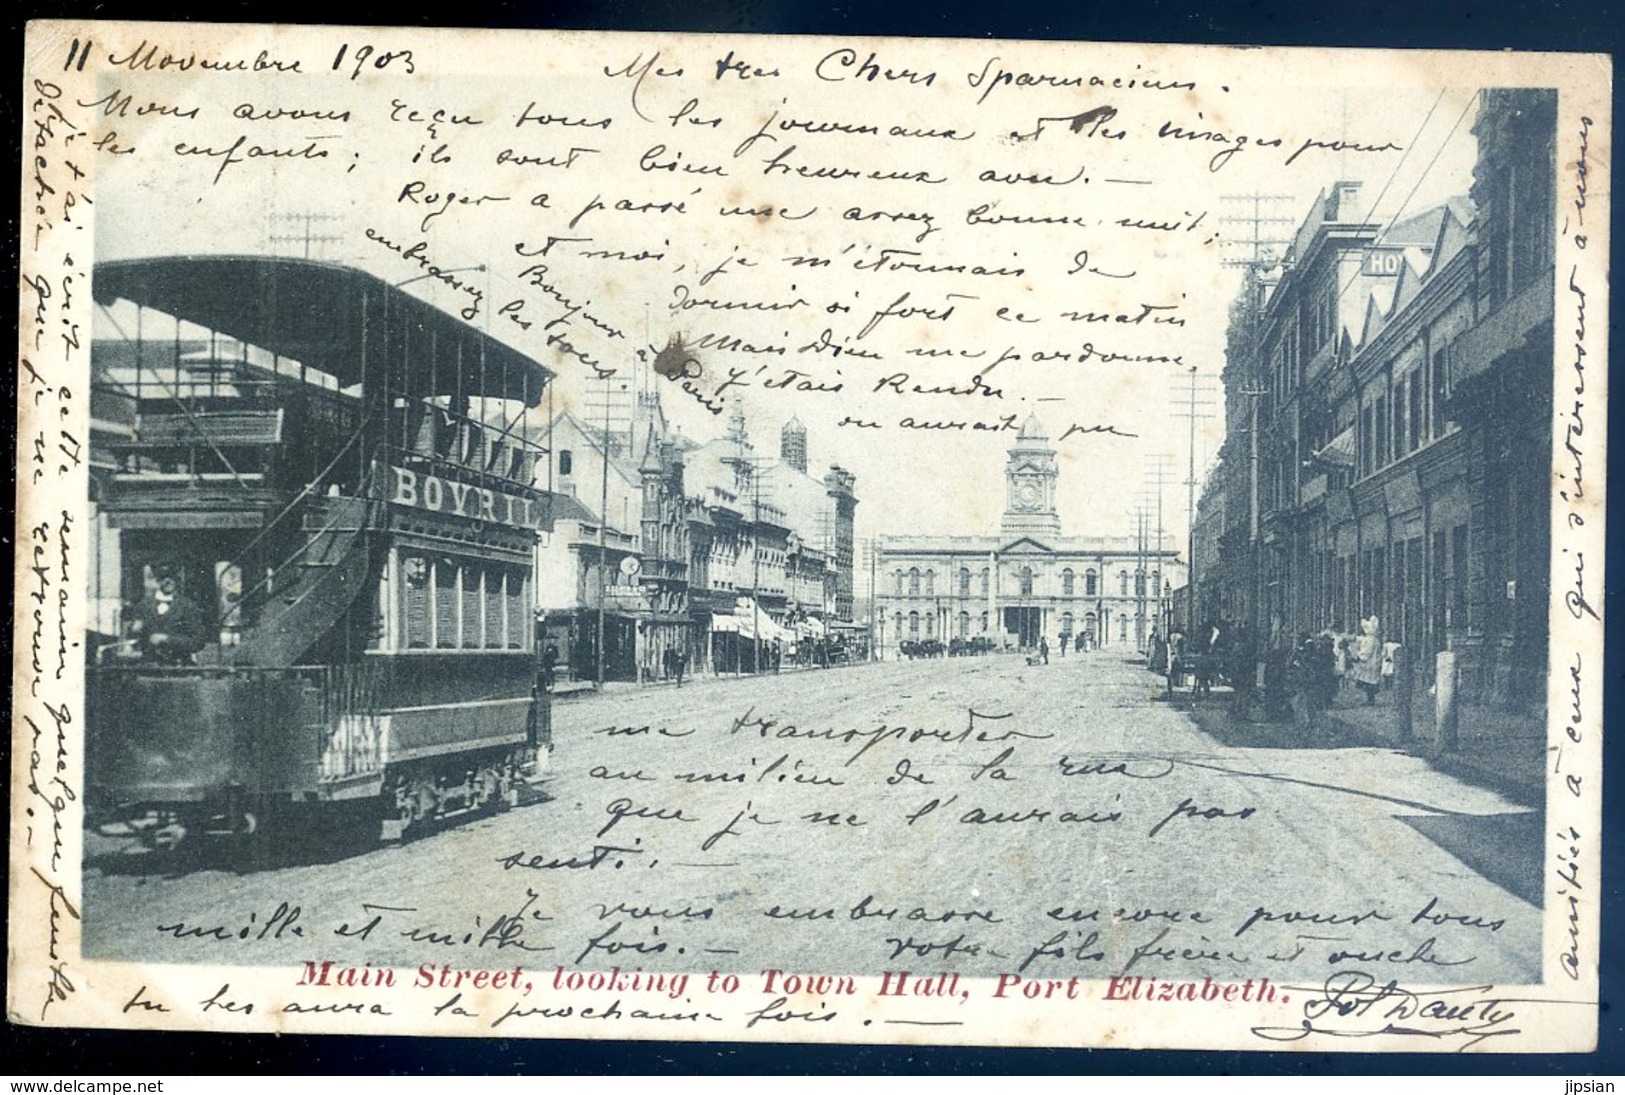 11 Novembre 1903
Mes tres Chers Sparnaciens.
Nous avons reçu tous les journaux et les images pour
les enfants; ils sont bien heureux avec. —
Roger a passé une assez bonne nuit;
et moi, je m'étonnais de
dormir si fort ce matin
Mais Dieu me pardonne,
J'étais Rendu. —
on aurait pu
me transporter
au milieu de la rue
que je ne l'aurais pas
senti. —
Je vous embrasse encore pour tous
mille et mille fois. —
votre fils frère et oncle
Bonjour à Paris
embrassez les tous.
BOVRIL
HO
Main Street, looking to Town Hall, Port Elizabeth.
je t'ai écrit cette semaine quelque feuille
détachée que je ne retrouve pas. —
tu les aura la prochaine fois. —
amitiés à ceux qui s'intéressent à nous
jipsian
delcampe.net